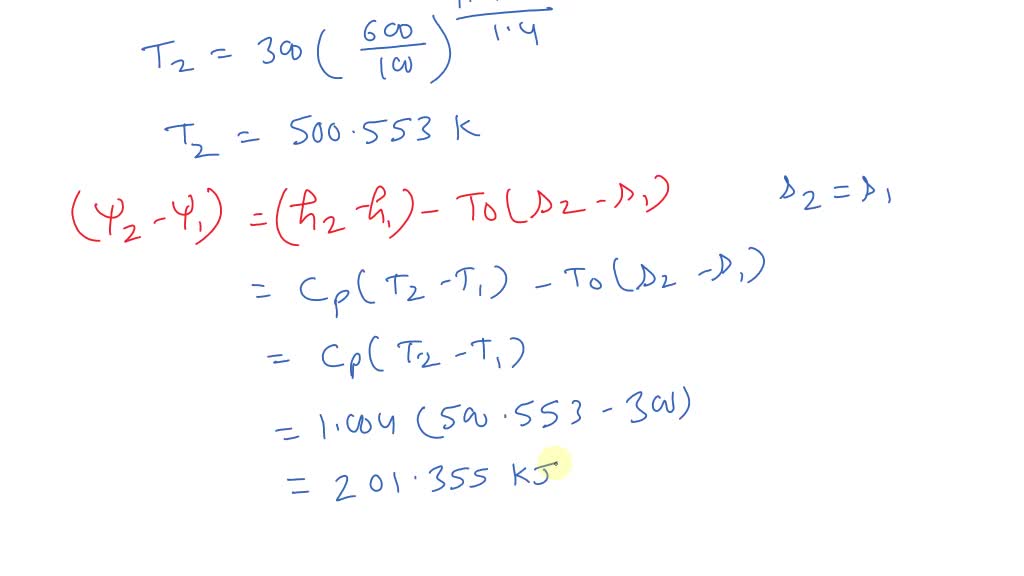 T₂ = 300 ( 600 / 100 ) / 1.4
T₂ = 500.553 K
(Ψ₂ - Ψ₁) = (h₂ - h₁) - T0 (s₂ - s₁) s₂ = s₁
= Cp ( T₂ - T₁ ) - T0 (s₂ - s₁)
= Cp ( T₂ - T₁ )
= 1.004 (500.553 - 300)
= 201.355 KJ